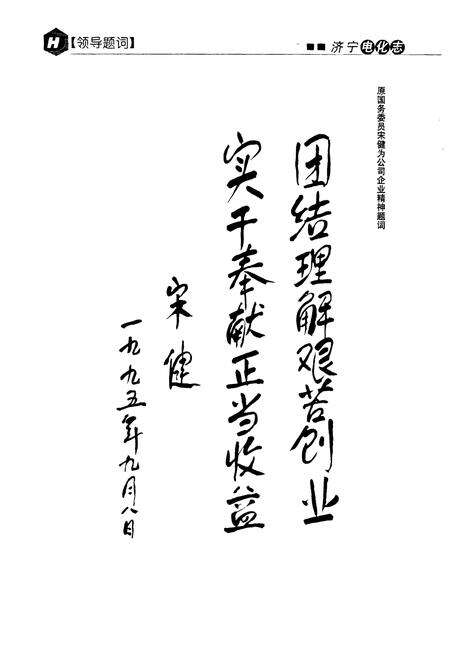 H【领导题词】
济宁电化志
原国务委员宋健为公司企业精神题词
团结理解艰苦创业
实干奉献正当收益
宋健
一九九五年九月八日